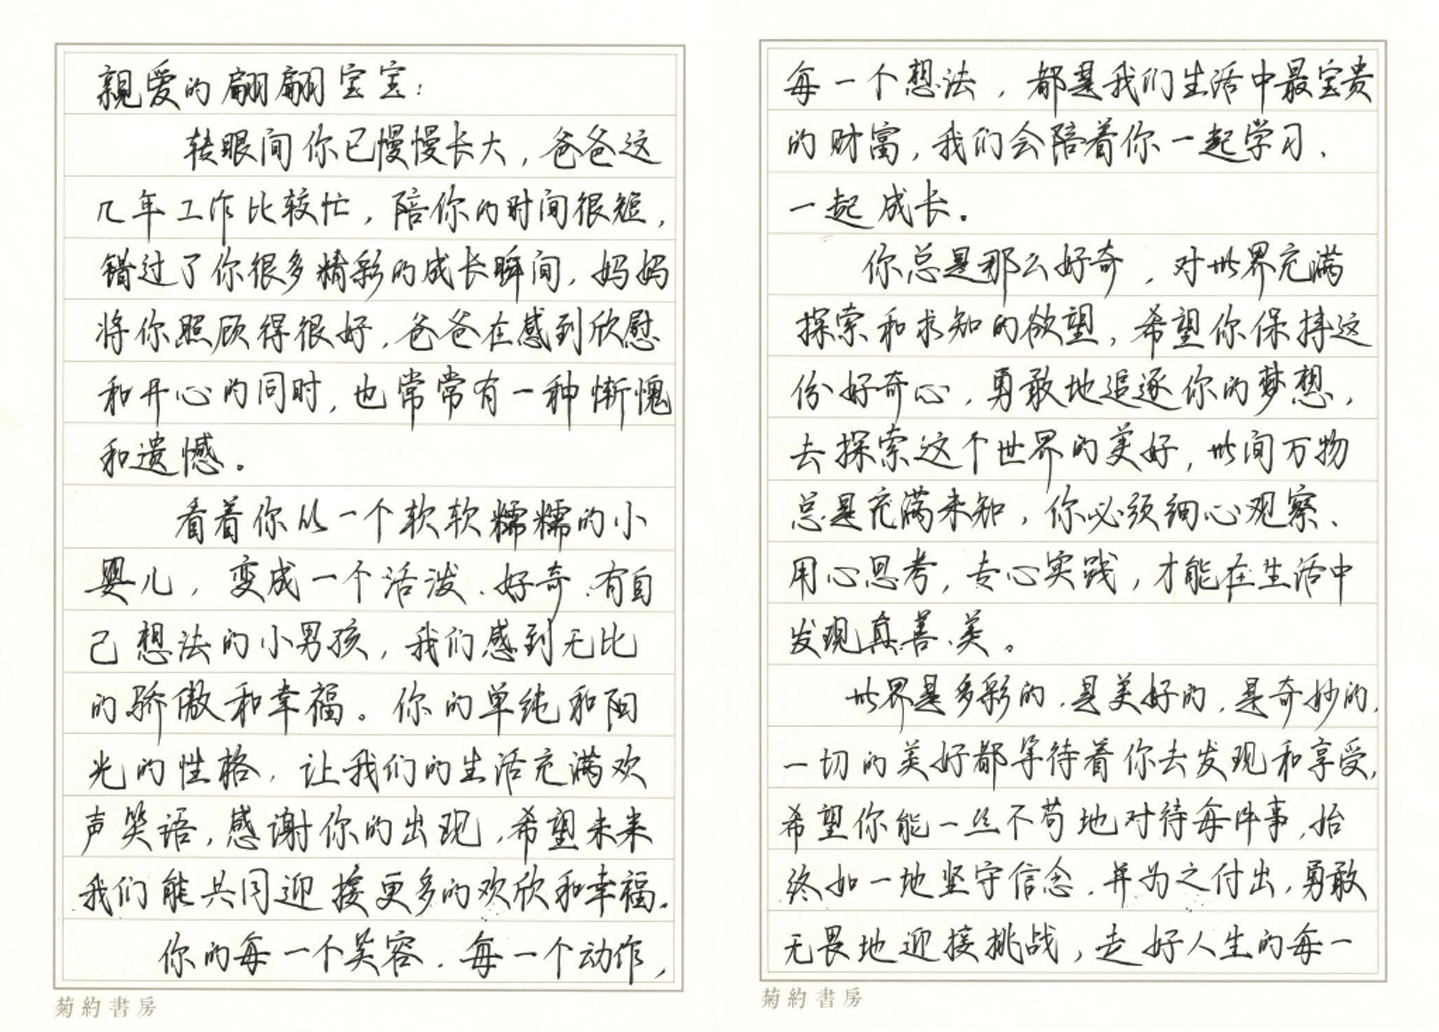 親爱的翩翩宝宝：
转眼间你已慢慢长大，爸爸这
几年工作比较忙，陪你的时间很短，
错过了你很多精彩的成长瞬间，妈妈
将你照顾得很好，爸爸在感到欣慰
和开心的同时，也常常有一种惭愧
和遗憾。
看着你从一个软软糯糯的小
婴儿，变成一个活泼、好奇、有自
己想法的小男孩，我们感到无比
的骄傲和幸福。你的单纯和阳
光的性格，让我们的生活充满欢
声笑语，感谢你的出现，希望未来
我们能共同迎接更多的欢欣和幸福。
你的每一个笑容、每一个动作，
菊約書房
每一个想法，都是我们生活中最宝贵
的财富，我们会陪着你一起学习、
一起成长。
你总是那么好奇，对世界充满
探索和求知的欲望，希望你保持这
份好奇心，勇敢地追逐你的梦想，
去探索这个世界的美好，世间万物
总是充满未知，你必须细心观察、
用心思考，专心实践，才能在生活中
发现真、善、美。
世界是多彩的、是美好的，是奇妙的，
一切的美好都等待着你去发现和享受，
希望你能一丝不苟地对待每件事，始
终如一地坚守信念，并为之付出，勇敢
无畏地迎接挑战，走好人生的每一
菊約書房